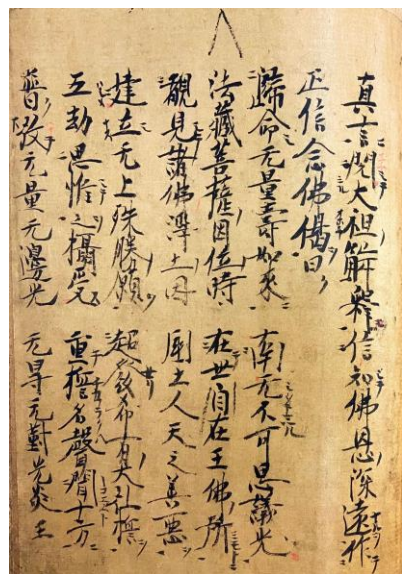 真言閲大祖解釋信知佛恩深遠作
正信念佛偈曰
歸命无量壽如来 南无不可思議光
法蔵菩薩因位時 在世自在王佛所
覩見諸佛淨土因 國土人天之善惡
建立无上殊勝願 超發希有大弘誓
五劫思惟之攝受 重誓名聲聞十方
普放无量无邊光 无导无對光炎王